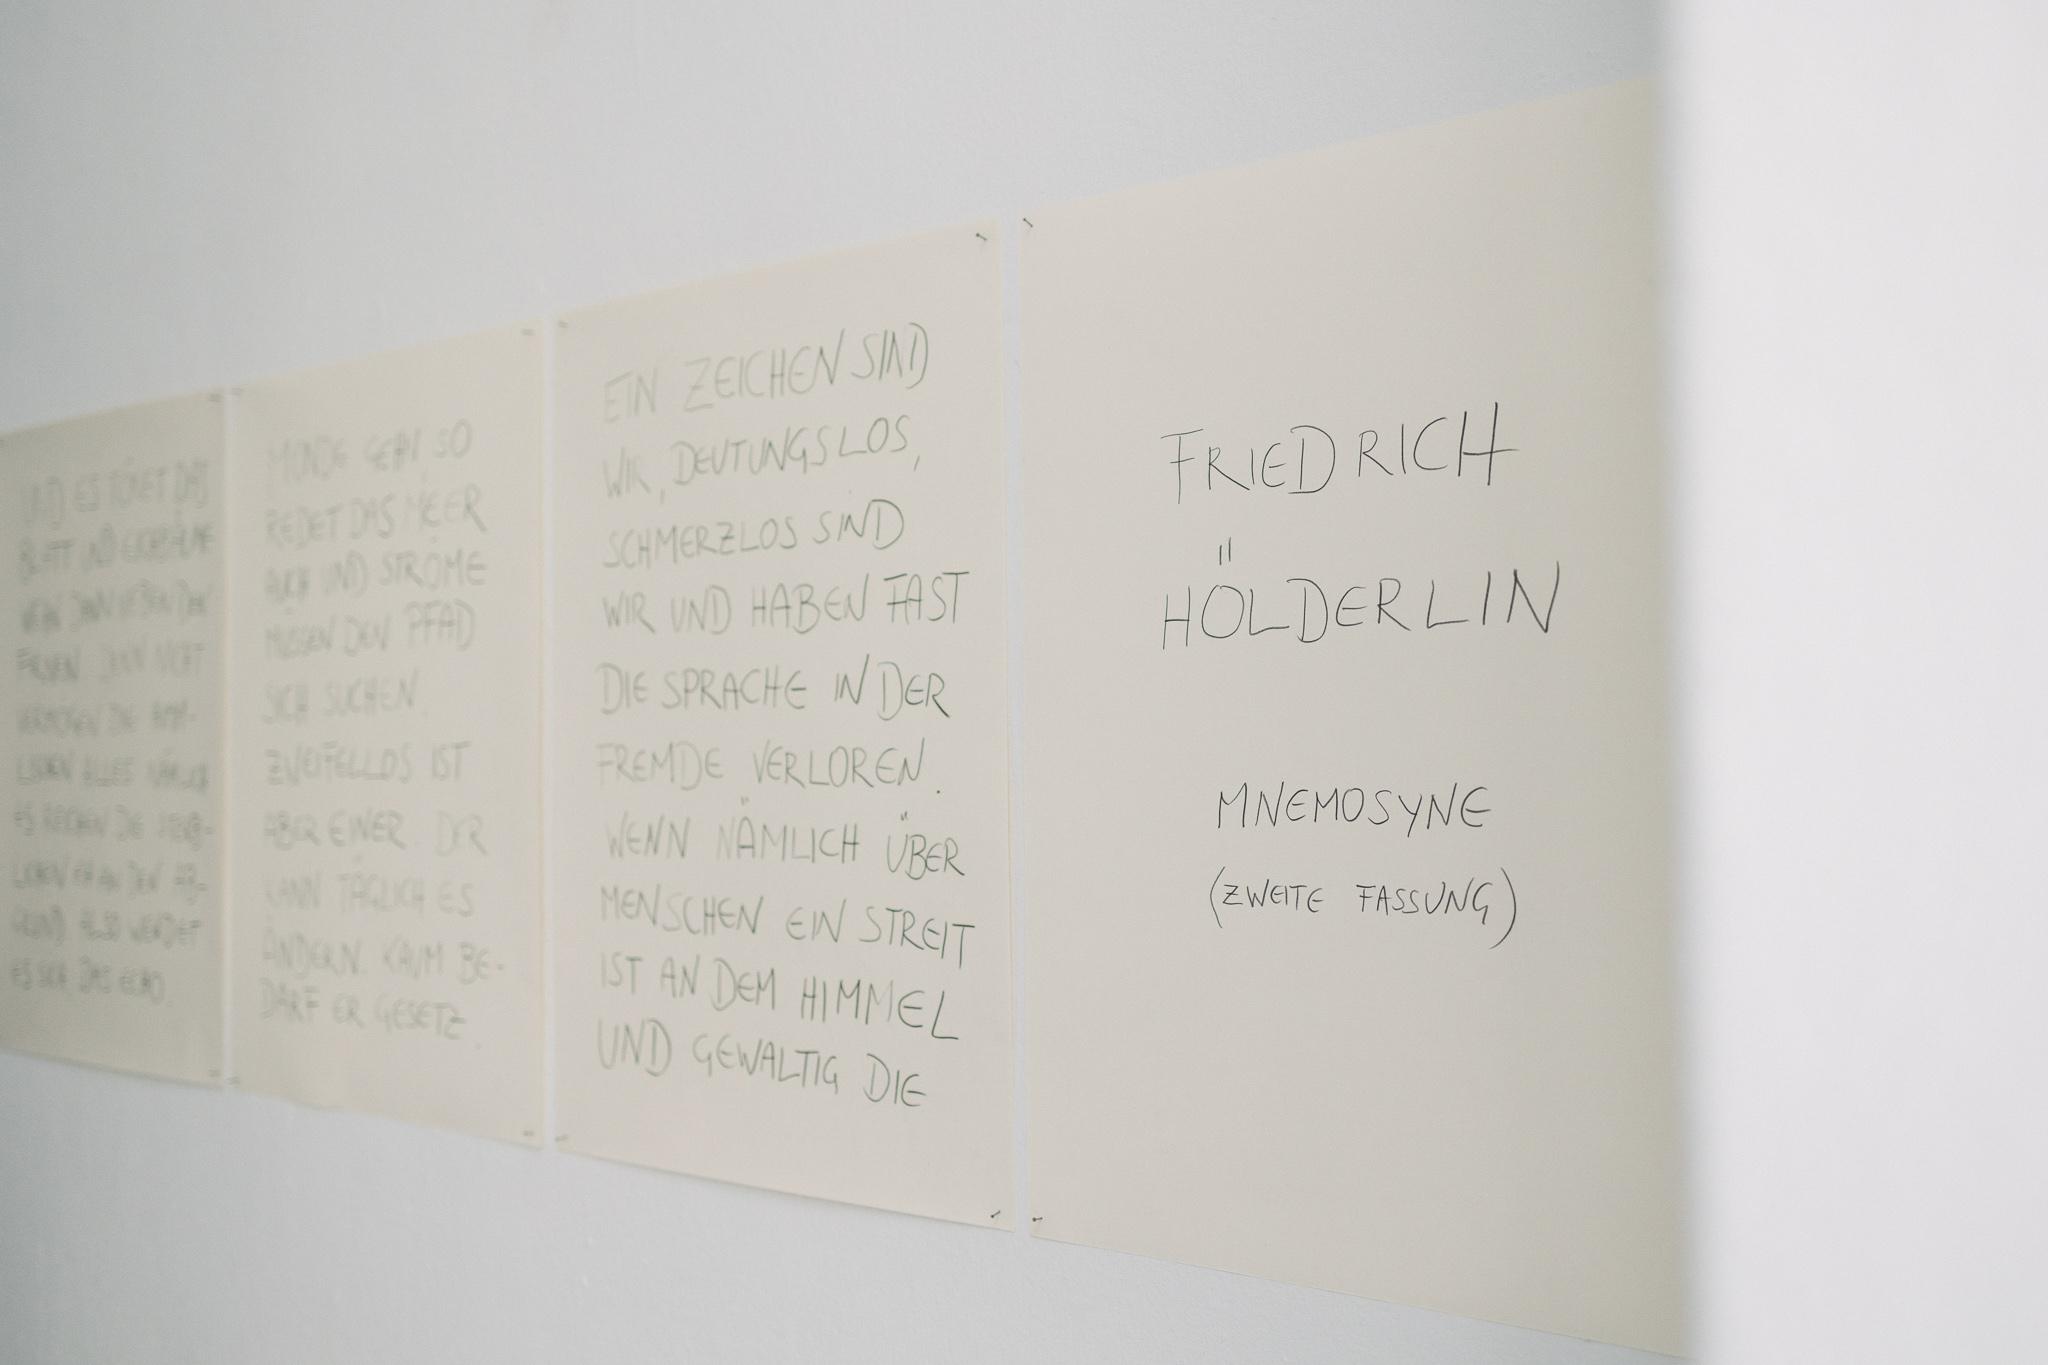 FRIEDRICH
HÖLDERLIN
MNEMOSYNE
(ZWEITE FASSUNG)
EIN ZEICHEN SIND
WIR, DEUTUNGSLOS,
SCHMERZLOS SIND
WIR UND HABEN FAST
DIE SPRACHE IN DER
FREMDE VERLOREN.
WENN NÄMLICH ÜBER
MENSCHEN EIN STREIT
IST AN DEM HIMMEL
UND GEWALTIG DIE
MONDE GEHN, SO
REDET DAS MEER
AUCH UND STRÖME
MÜSSEN DEN PFAD
SICH SUCHEN.
ZWEIFELLOS IST
ABER EINER. DER
KANN TÄGLICH ES
ÄNDERN. KAUM BE-
DARF ER GESETZ.
UND ES TÖNET DAS
BLATT UND EICHBÄUME
WEHN DANN NEBEN DEN
FIRNEN. DENN NICHT
VERMÖGEN DIE HIMM-
LISCHEN ALLES. NÄMLICH
ES REICHEN DIE STERB-
LICHEN EH AN DEN AB-
GRUND. ALSO WENDET
ES SICH, DAS ECHO